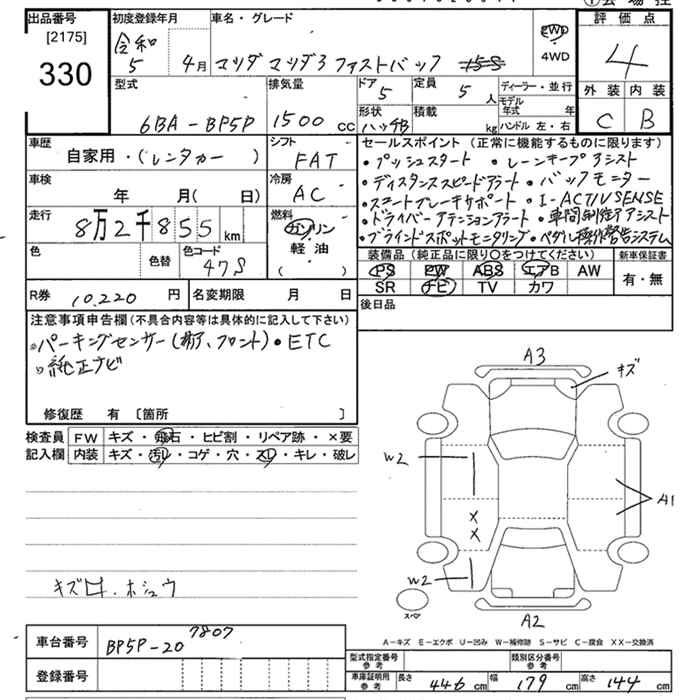 出品番号
[2175]
330
初度登録年月
令和
5 4月
車名・グレード
マツダ マツダ3 ファストバック 15S
2WD
4WD
評価点
4
外装 内装
C B
型式
6BA-BP5P
排気量
1500 cc
ドア
5
定員
5 人
形状
ハッチB
積載
kg
ディーラー・並行
モデル年式 年
ハンドル 左・右
車歴
自家用・(レンタカー)
シフト
FAT
車検
年 月(日)
冷房
AC
走行
8万2千855 km
燃料
ガソリン
軽油
( )
色
色替
色コード
47S
セールスポイント(正常に機能するものに限ります)
・プッシュスタート ・レーンキープアシスト
・ディスタンススピードアラート・バックモニター
・スマートブレーキサポート・I-ACTIVSENSE
・ドライバーアテンションアラート・車間制御アシスト
・ブラインドスポットモニタリング・ペダル操作警告システム
装備品(純正品に限り○をつけてください)
PS PW ABS エアB AW
SR ナビ TV カワ
新車保証書
有・無
R券 10,220 円
名変期限 月 日
後日品
注意事項申告欄(不具合内容等は具体的に記入して下さい)
・パーキングセンサー(前ア、フロント)・ETC
・純正ナビ
修復歴 有 〔箇所 〕
検査員
記入欄
FW キズ・飛石・ヒビ割・リペア跡・×要
内装 キズ・汚レ・コゲ・穴・スレ・キレ・破レ
キズ ホシュウ
A3
キズ
W2
A1
X
X
W2
スペア
A2
A-キズ E-エクボ U-凹み W-補修跡 S-サビ C-腐食 XX-交換済
車台番号
BP5P-20
7807
登録番号
型式指定番号
参考
類別区分番号
参考
車庫証明用
参考
長さ 446 cm 幅 179 cm 高さ 144 cm